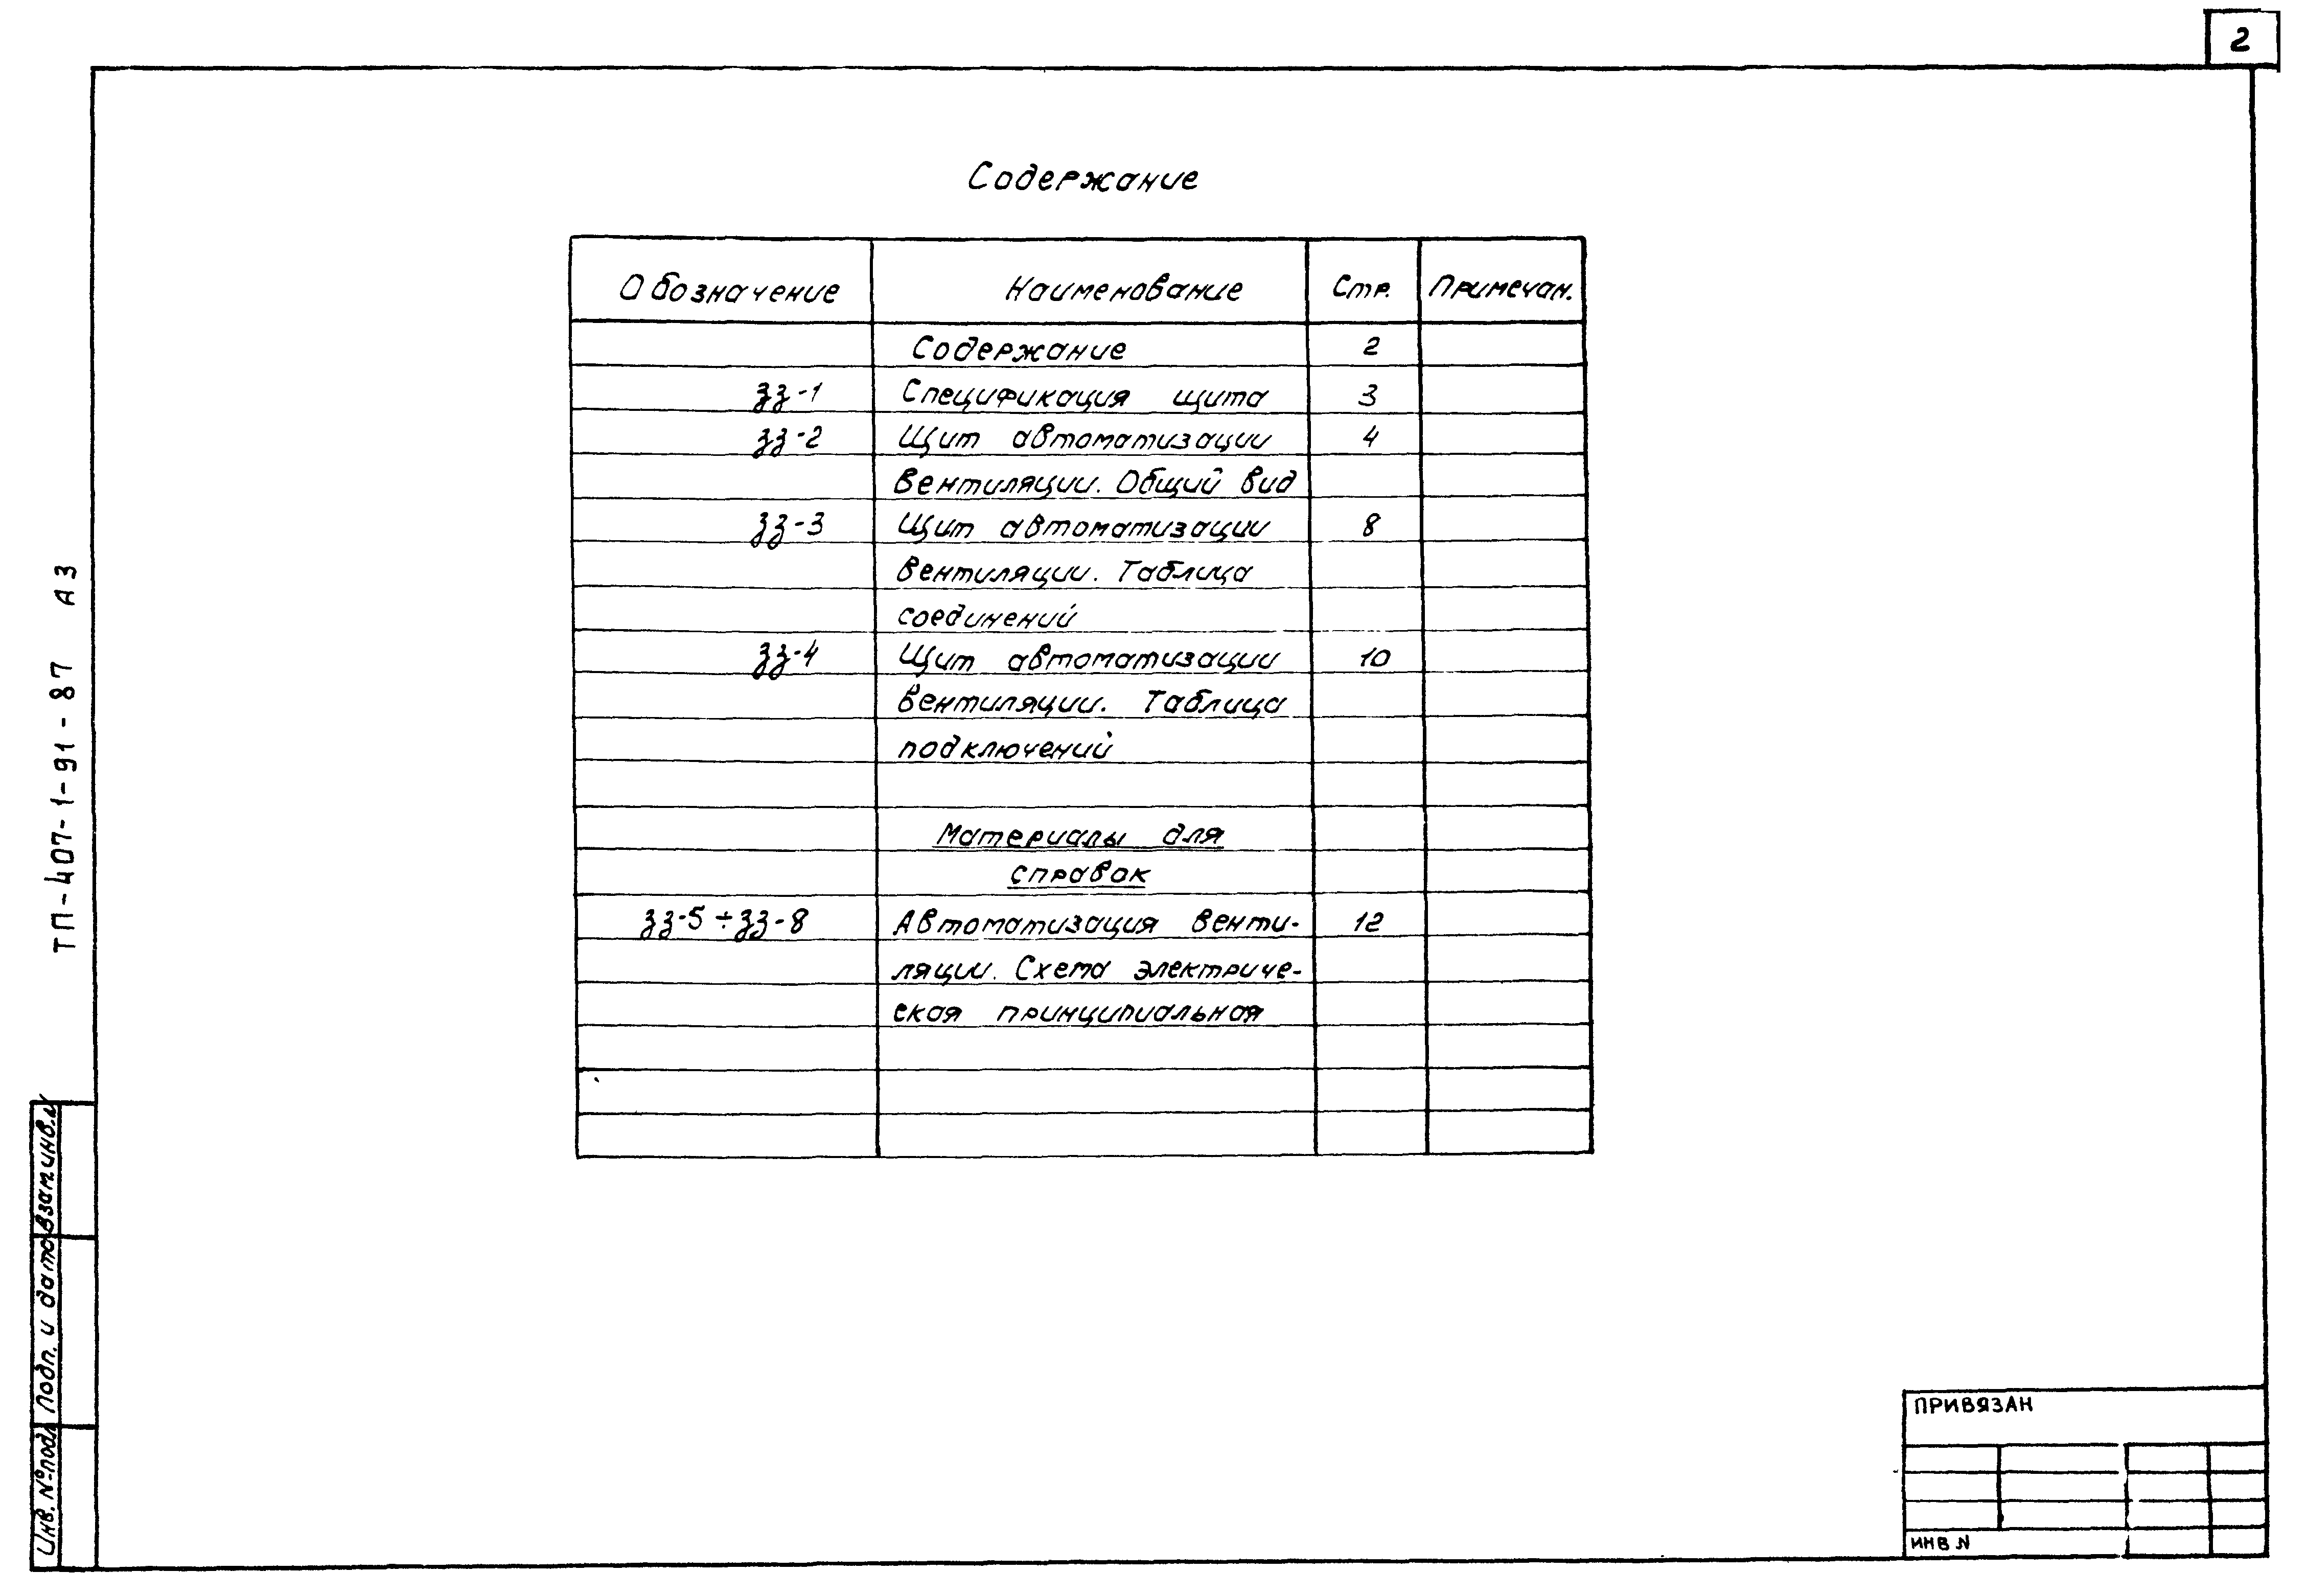 2
Содержание
Обозначение Наименование Стр. Примечан.
Содержание 2
зз-1 Спецификация щита 3
зз-2 Щит автоматизации 4
вентиляции. Общий вид
зз-3 Щит автоматизации 8
вентиляции. Таблица
соединений
зз-4 Щит автоматизации 10
вентиляции. Таблица
подключений
Материалы для
справок
зз-5 ÷ зз-8 Автоматизация венти-
ляции. Схема электриче-
ская принципиальная 12
ТП-407-1-91-87 А3
Взам.инв.№
Подп. и дата
Инв. № подл.
ПРИВЯЗАН
ИНВ N